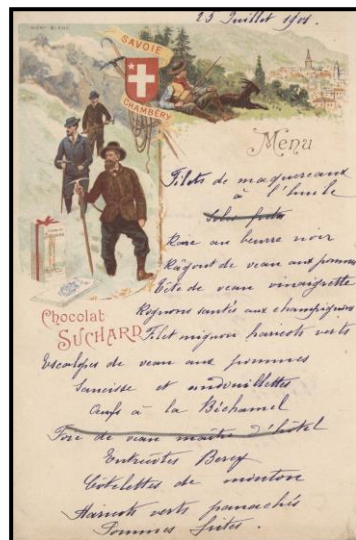 23 Juillet 1901.
MONT BLANC
SAVOIE
CHAMBÉRY
Menu
Filets de maquereaux
à l'huile
Raie au beurre noir
Râgout de veau aux pommes
Tête de veau vinaigrette
Rognons sautés aux champignons
Chocolat
SUCHARD
Filet mignon haricots verts
Escalopes de veau aux pommes
Saucisse et andouillettes
Œufs à la Béchamel
Foie de veau maître d'hôtel
Entrecôtes Bercy
Côtelettes de mouton
Haricots verts panachés
Pommes frites.